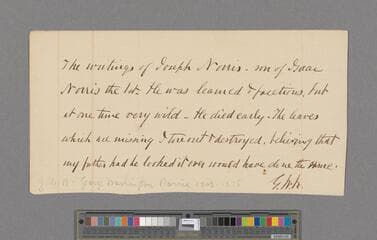 The writings of Joseph Norris - son of Isaac
Norris the 1st. He was learned & facetious, but
at one time very wild - He died early. The leaves
which are missing I tore out & destroyed, believing that
my father had he looked it over would have done the same.
G.W.N.
George Washington Norris 1808-1875